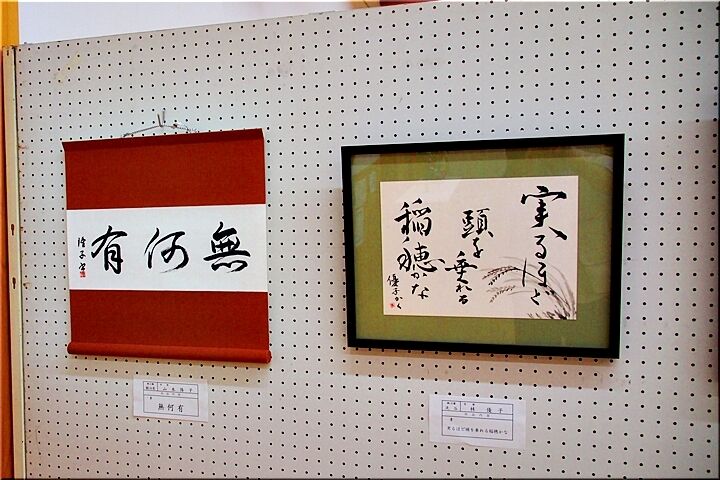 無何有
実るほど
頭を
垂れる
稲穂かな
優子かく
無何有
林 優子
書
実るほど頭を垂れる稲穂かな